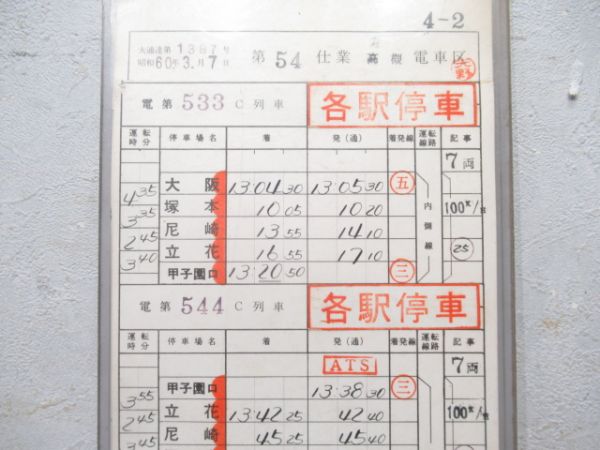 4-2
大通達第1387号
昭和60年3月7日
第54仕業 高槻電車区
電第533C列車 各駅停車
運転時分 停車場名 着 発(通) 着発線 運転線路 記事
7両
大阪 13 04 30 13 05 30 五
4 35 塚本 10 05 10 20 内側線 100
3 35 尼崎 13 55 14 10
2 45 立花 16 55 17 10 25
3 40 甲子園口 13 20 50 三
電第544C列車 各駅停車
運転時分 停車場名 着 発(通) 着発線 運転線路 記事
ATS 7両
甲子園口 13 38 30 三
3 55 立花 13 42 25 42 40 100
2 45 尼崎 45 25 45 40
3 45